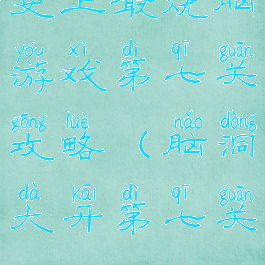 史上最烧脑
yóu xì dì qī guān
游戏第七关
gōng lüè nǎo dòng
攻略（脑洞
dà kāi dì qī guān
大开第七关